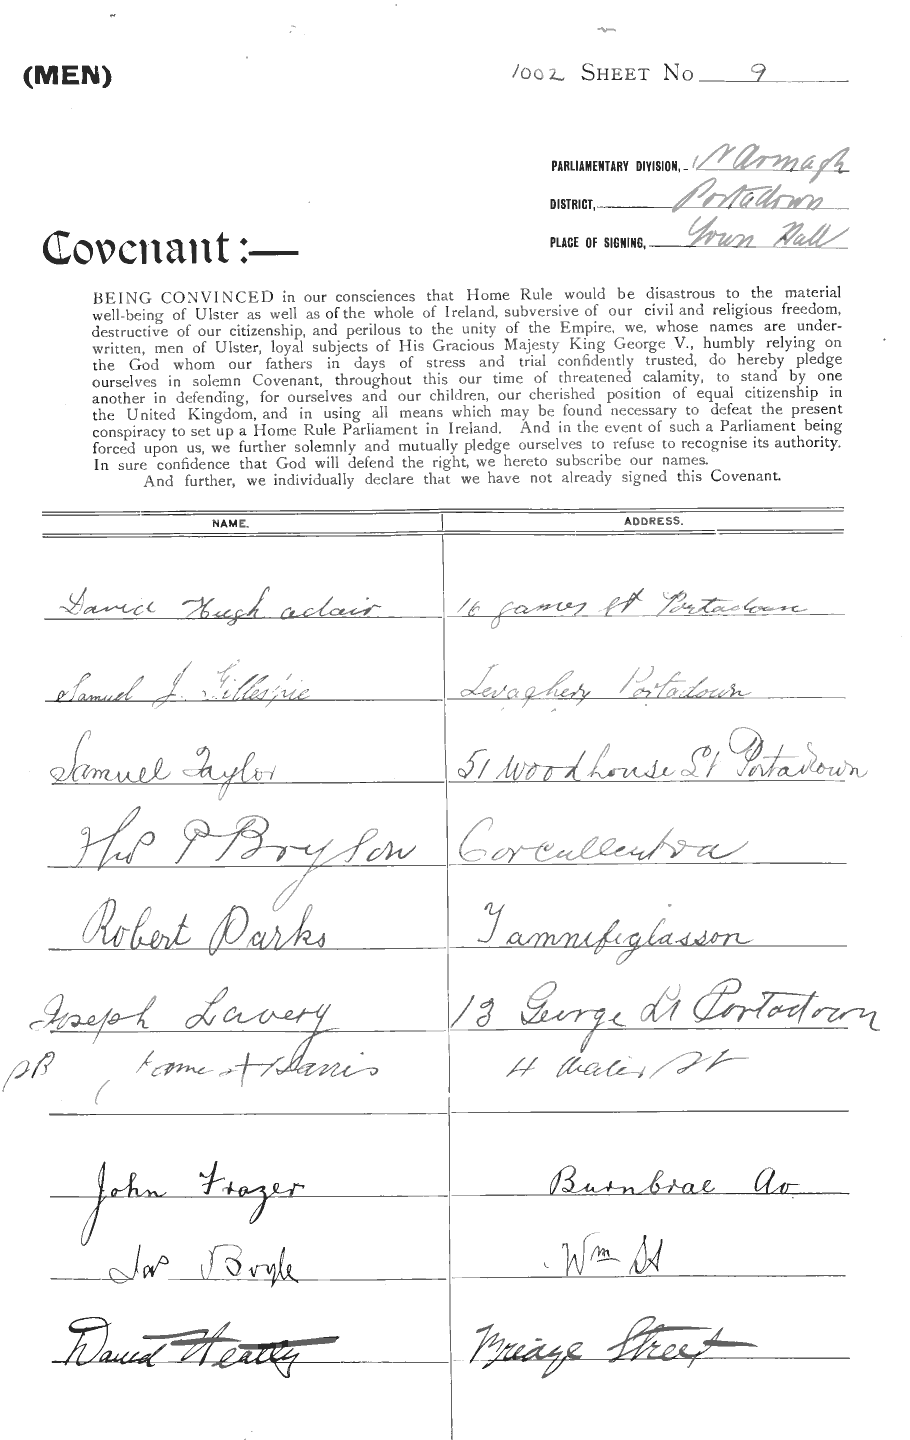 (MEN)
1002 SHEET No 9
PARLIAMENTARY DIVISION, N Armagh
DISTRICT, Portadown
PLACE OF SIGNING, Town Hall
Covenant :—
BEING CONVINCED in our consciences that Home Rule would be disastrous to the material
well-being of Ulster as well as of the whole of Ireland, subversive of our civil and religious freedom,
destructive of our citizenship, and perilous to the unity of the Empire, we, whose names are under-
written, men of Ulster, loyal subjects of His Gracious Majesty King George V., humbly relying on
the God whom our fathers in days of stress and trial confidently trusted, do hereby pledge
ourselves in solemn Covenant, throughout this our time of threatened calamity, to stand by one
another in defending, for ourselves and our children, our cherished position of equal citizenship in
the United Kingdom, and in using all means which may be found necessary to defeat the present
conspiracy to set up a Home Rule Parliament in Ireland. And in the event of such a Parliament being
forced upon us, we further solemnly and mutually pledge ourselves to refuse to recognise its authority.
In sure confidence that God will defend the right, we hereto subscribe our names.
And further, we individually declare that we have not already signed this Covenant.
NAME. ADDRESS.
David Hugh adair 16 James St Portadown
Samuel J. Gillespie Levaghery Portadown
Samuel Taylor 51 Woodhouse St Portadown
Thos P Bryson Corcullentra
Robert Parks Tamnifiglasson
Joseph Lavery 13 George St Portadown
Harris 4 Water St
John Frazer Burnbrae Av
Jas Boyle Wm St
David Heatly Bridge Street